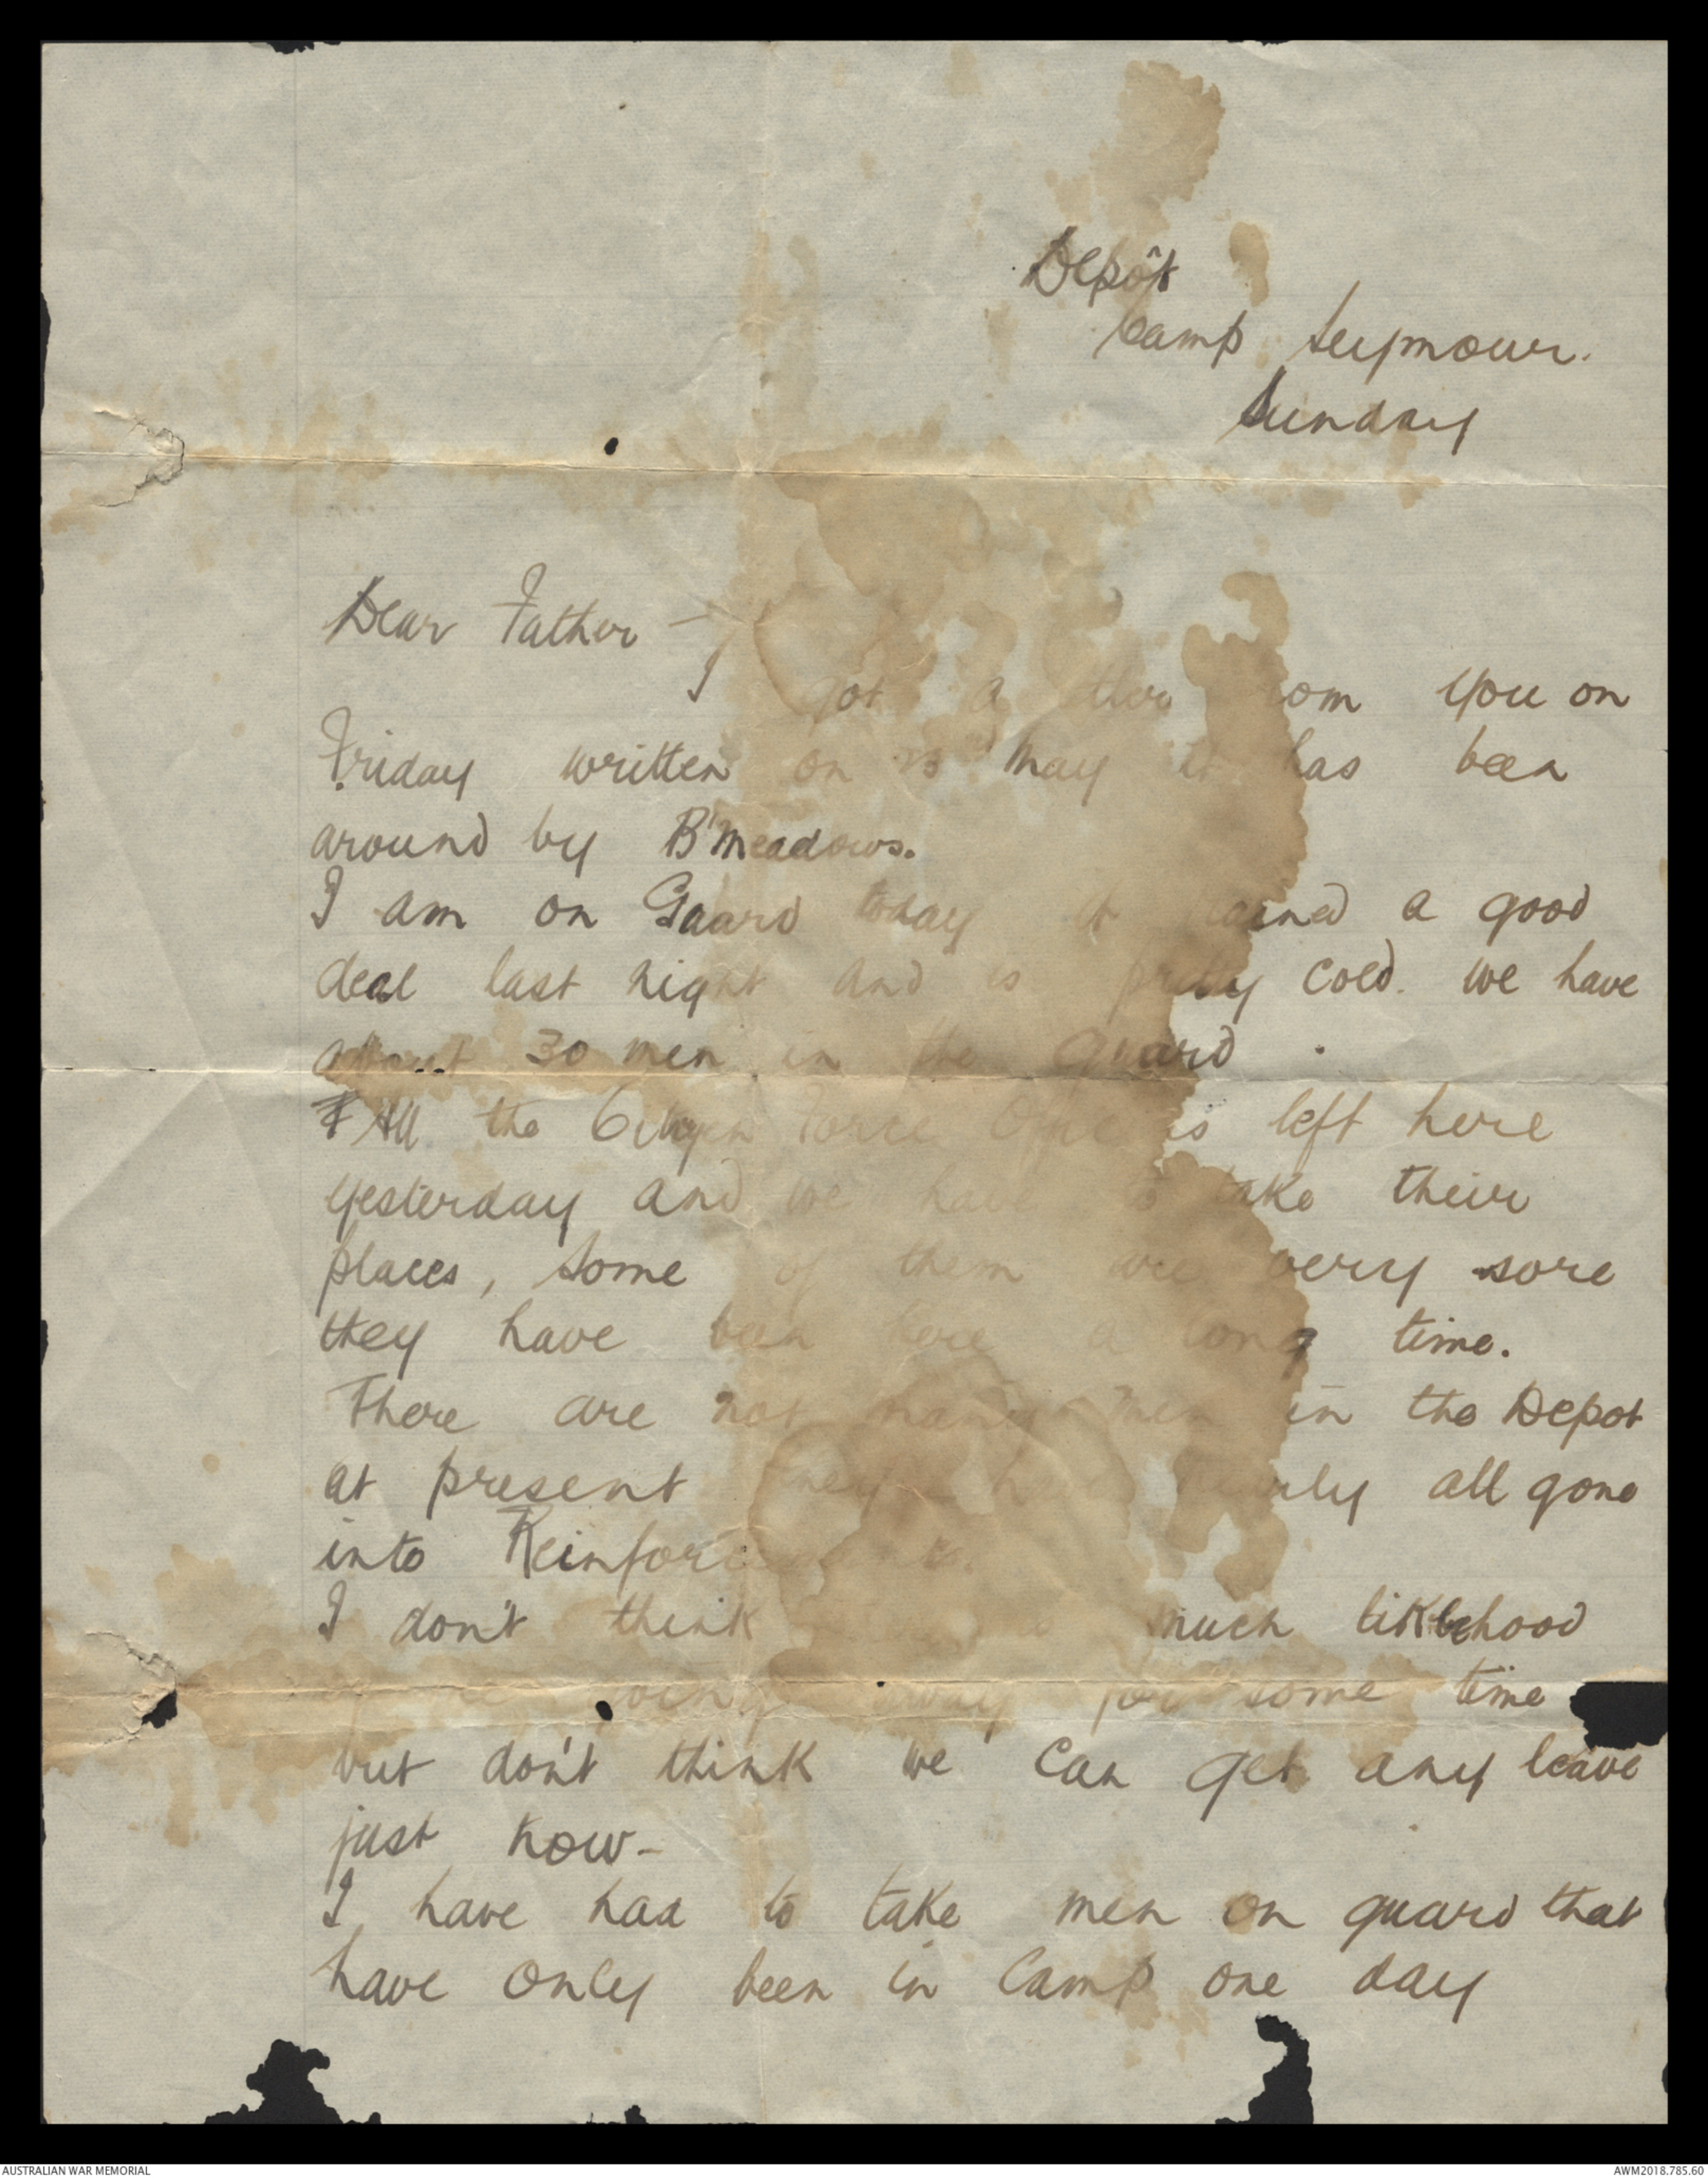 Depôt
Camp Seymour.
Sunday
Dear Father —
I got a you on
Friday written on May it has been
around by B'meadows.
I am on Gaurd today it rained a good
deal last night and is pretty cold. we have
about 30 men in the guard.
All the Citizen Force Officers left here
yesterday and we have to take their
places, some of them are very sore
they have been here a long time.
There are not many men in the Depot
at present they nearly all gone
into Reinforcements.
I don't think much liklehood
going away for some time
but don't think we can get any leave
just now-
I have had to take men on guard that
have only been in Camp one day
AUSTRALIAN WAR MEMORIAL
AWM2018.785.60